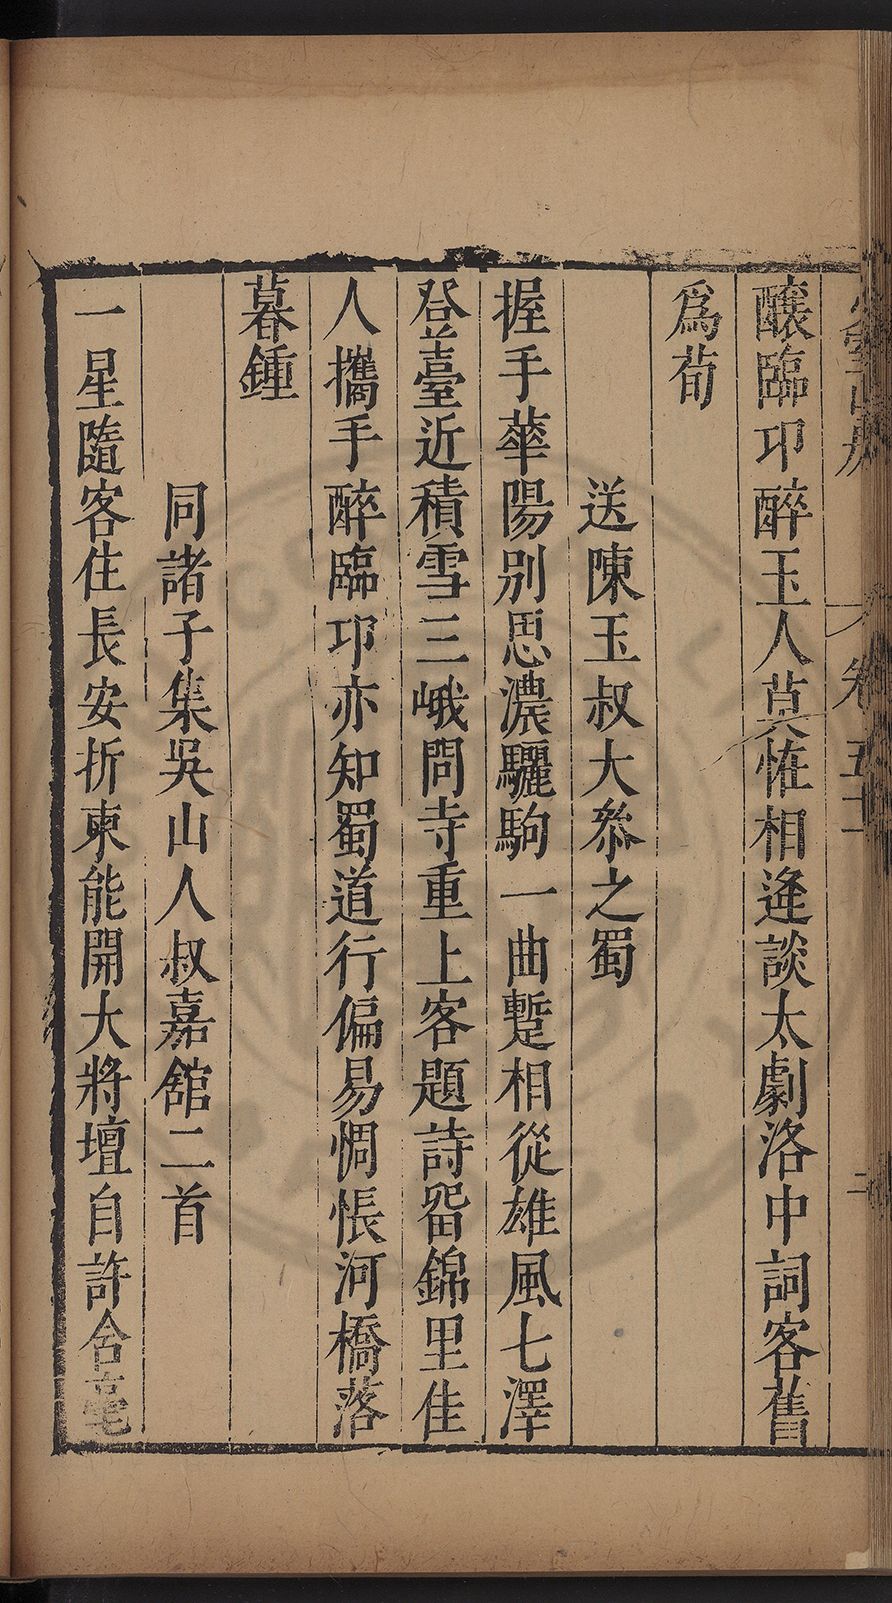 卷五十
二
釀臨卭醉玉人莫恠相逢談太劇洛中詞客舊
爲荀
送陳玉叔大叅之蜀
握手華陽別思濃驪駒一曲蹔相從雄風七澤
登臺近積雪三峨問寺重上客題詩畱錦里佳
人攜手醉臨卭亦知蜀道行偏易惆悵河橋落
暮鍾
同諸子集吳山人叔嘉舘二首
一星隨客住長安折柬能開大將壇自許含毫